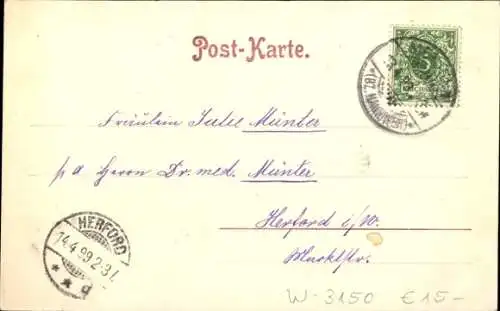 Post-Karte.
5
(BZ. HANNOVER)
Fräulein Julie Münter
p a Herrn Dr. med. Münter
Herford i/W.
Marktstr.
HERFORD
14.4.99.2-3N.
* * d
W-3150 €15-